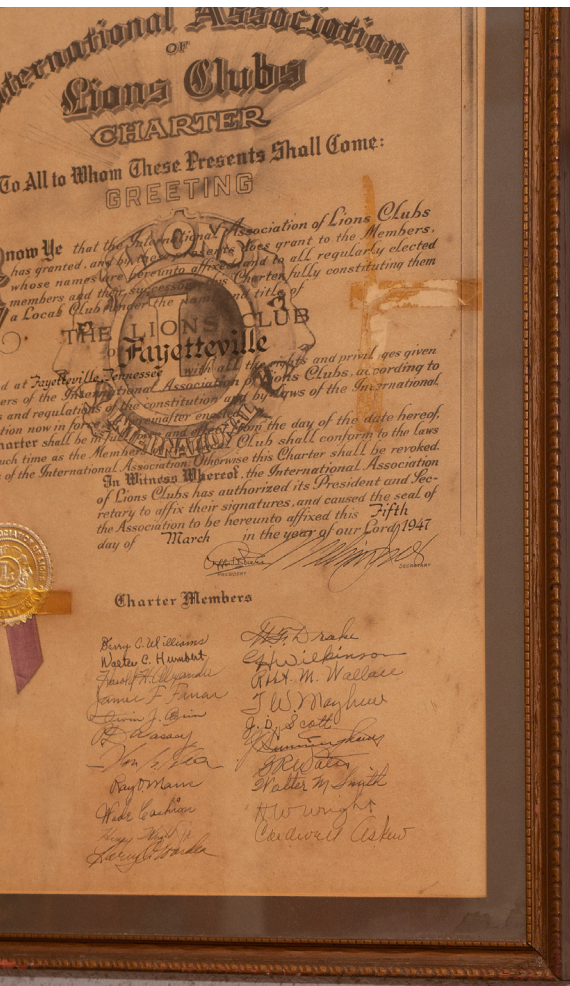 International Association
OF
Lions Clubs
CHARTER
To All to Whom These Presents Shall Come:
GREETING
now Ye that the International Association of Lions Clubs
has granted, and by these presents does grant to the Members,
whose names are hereunto affixed and to all regularly elected
members and their successors this Charter fully constituting them
a Local Club under the name and title of
THE LIONS CLUB
of Fayetteville
d at Fayetteville, Tennessee with all the rights and privileges given
ers of the International Association of Lions Clubs, according to
s and regulations of the constitution and by-laws of the International
tion now in force or hereinafter enacted
harter shall be in full force and effect from the day of the date hereof,
uch time as the Members Club shall conform to the laws
of the International Association. Otherwise this Charter shall be revoked.
In Witness Whereof, the International Association
of Lions Clubs has authorized its President and Sec-
retary to affix their signatures, and caused the seal of
the Association to be hereunto affixed this Fifth
day of March in the year of our Lord, 1947
PRESIDENT
SECRETARY
LIONS
INTERNATIONAL
Charter Members
Berry C. Williams
Walter C. Humbert
James F. Farrar
Ray O Mann
Wade Cashion
H. F. Drake
Wilkinson
M. Wallace
T W. Mayhew
J. D. Scott
Walter M Smith
H W Wright
Cardwell Askew